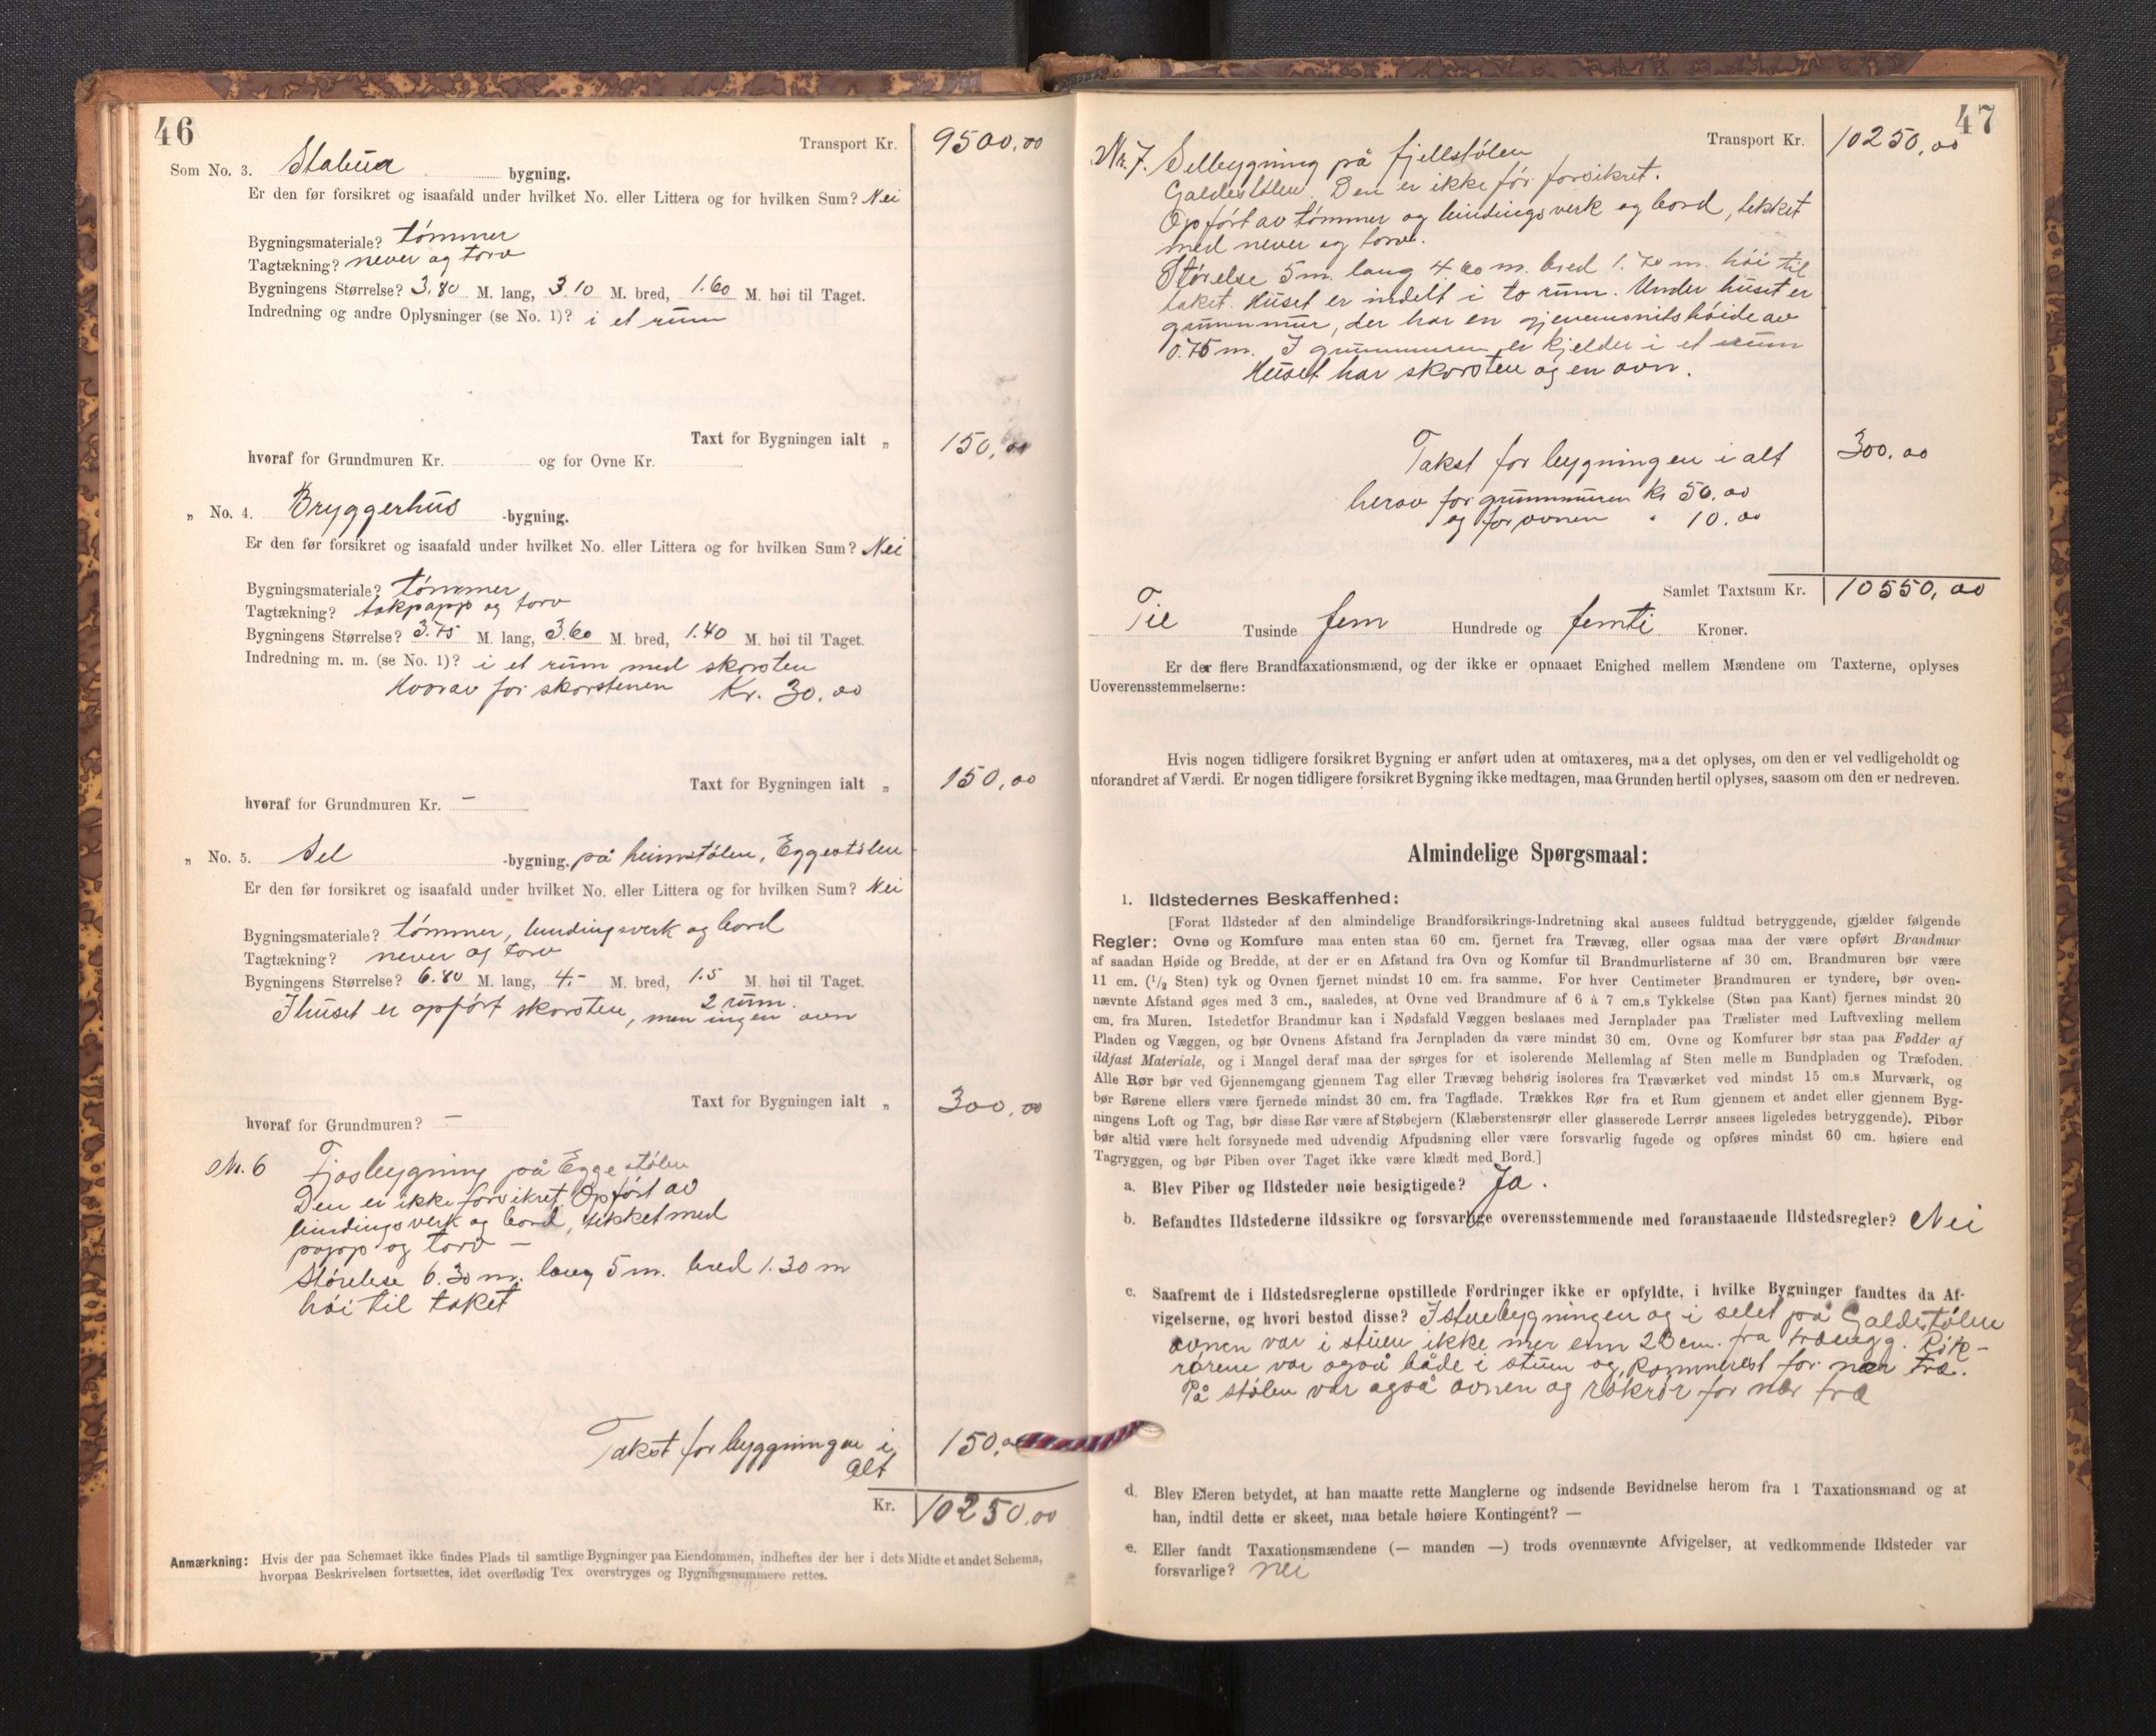 46
Transport Kr. 9500,00
Som No. 3. Stabur bygning.
Er den før forsikret og isaafald under hvilket No. eller Littera og for hvilken Sum? Nei
Bygningsmateriale? tømmer
Tagtækning? never og torv
Bygningens Størrelse? 3.80 M. lang, 3.10 M. bred, 1.60 M. høi til Taget.
Indredning og andre Oplysninger (se No. 1)? i et rum
Taxt for Bygningen ialt „ 150,00
hvoraf for Grundmuren Kr. og for Ovne Kr.
„ No. 4. Bryggerhus -bygning.
Er den før forsikret og isaafald under hvilket No. eller Littera og for hvilken Sum? Nei
Bygningsmateriale? tømmer
Tagtækning? takpapp og torv
Bygningens Størrelse? 3.75 M. lang, 3.60 M. bred, 1.40 M. høi til Taget.
Indredning m. m. (se No. 1)? i et rum med skorsten
Hvorav for skorstenen Kr. 30,00
Taxt for Bygningen ialt „ 150,00
hvoraf for Grundmuren Kr. —
„ No. 5. Sel -bygning. på heimstølen, Eggestølen
Er den før forsikret og isaafald under hvilket No. eller Littera og for hvilken Sum? Nei
Bygningsmateriale? tømmer, bindingsverk og bord
Tagtækning? never og torv
Bygningens Størrelse? 6.80 M. lang, 4.- M. bred, 1.5 M. høi til Taget.
2 rum.
I huset er opført skorsten, men ingen ovn
Taxt for Bygningen ialt „ 300,00
hvoraf for Grundmuren? —
Nr. 6 Fjosbygning på Eggestølen
Den er ikke forsikret. Opført av
bindingsverk og bord, tekket med
papp og torv —
Størelse 6.30 m. lang 5 m. bred 1.30 m
høi til taket
Takst for byggningen i
alt 150,00
Kr. 10250,00
Anmærkning: Hvis der paa Schemaet ikke findes Plads til samtlige Bygninger paa Eiendommen, indheftes der her i dets Midte et andet Schema,
hvorpaa Beskrivelsen fortsættes, idet overflødig Tex overstryges og Bygningsnummere rettes.
47
Transport Kr. 10250,00
Nr. 7. Selbygning på fjellstølen
Galdestølen. Den er ikke før forsikret.
Opført av tømmer og bindingsverk og bord, tekket
med never og torv.
Størelse 5 m. lang 4.60 m. bred 1.70 m. høi til
taket. Huset er indelt i to rum. Under huset er
grunnmur, der har en gjenemsnitshøide av
0.75 m. I grunnmuren er kjelder i et rum
Huset har skorsten og en ovn.
Takst for bygningen i alt 300,00
herav for grunnmuren kr 50,00
og for ovnen " 10,00
Samlet Taxtsum Kr. 10550,00
Til Tusinde fem Hundrede og femti Kroner.
Er der flere Brandtaxationsmænd, og der ikke er opnaaet Enighed mellem Mændene om Taxterne, oplyses
Uoverensstemmelserne:
Hvis nogen tidligere forsikret Bygning er anført uden at omtaxeres, maa det oplyses, om den er vel vedligeholdt og
uforandret af Værdi. Er nogen tidligere forsikret Bygning ikke medtagen, maa Grunden hertil oplyses, saasom om den er nedreven.
Almindelige Spørgsmaal:
1. Ildstedernes Beskaffenhed:
[Forat Ildsteder af den almindelige Brandforsikrings-Indretning skal ansees fuldtud betryggende, gjælder følgende
Regler: Ovne og Komfure maa enten staa 60 cm. fjernet fra Trævæg, eller ogsaa maa der være opført Brandmur
af saadan Høide og Bredde, at der er en Afstand fra Ovn og Komfur til Brandmurlisterne af 30 cm. Brandmuren bør være
11 cm. (1/2 Sten) tyk og Ovnen fjernet mindst 10 cm. fra samme. For hver Centimeter Brandmuren er tyndere, bør oven-
nævnte Afstand øges med 3 cm., saaledes, at Ovne ved Brandmure af 6 à 7 cm.s Tykkelse (Sten paa Kant) fjernes mindst 20
cm. fra Muren. Istedetfor Brandmur kan i Nødsfald Væggen beslaaes med Jernplader paa Trælister med Luftvexling mellem
Pladen og Væggen, og bør Ovnens Afstand fra Jernpladen da være mindst 30 cm. Ovne og Komfurer bør staa paa Fødder af
ildfast Materiale, og i Mangel deraf maa der sørges for et isolerende Mellemlag af Sten mellem Bundpladen og Træfoden.
Alle Rør bør ved Gjennemgang gjennem Tag eller Trævæg behørig isoleres fra Træværket ved mindst 15 cm.s Murværk, og
bør Rørene ellers være fjernede mindst 30 cm. fra Tagflade. Trækkes Rør fra et Rum gjennem et andet eller gjennem Byg-
ningens Loft og Tag, bør disse Rør være af Støbejern (Klæberstensrør eller glasserede Lerrør ansees ligeledes betryggende). Piber
bør altid være helt forsynede med udvendig Afpudsning eller være forsvarlig fugede og opføres mindst 60 cm. høiere end
Tagryggen, og bør Piben over Taget ikke være klædt med Bord.]
a. Blev Piber og Ildsteder nøie besigtigede? Ja.
b. Befandtes Ildstederne ildssikre og forsvarlige overensstemmende med foranstaaende Ildstedsregler? Nei
c. Saafremt de i Ildstedsreglerne opstillede Fordringer ikke er opfyldte, i hvilke Bygninger fandtes da Af-
vigelserne, og hvori bestod disse? I stuebygningen og i selet på Galdestølen
ovnen var i stuen ikke mer enn 23 cm. fra trævegg. Røk-
rørene var også både i stuen og kammerset for nær træ.
På stølen var også ovnen og røkrør for nær træ
d. Blev Eieren betydet, at han maatte rette Manglerne og indsende Bevidnelse herom fra 1 Taxationsmand og at
han, indtil dette er skeet, maa betale høiere Kontingent? —
e. Eller fandt Taxationsmændene (— manden —) trods ovennævnte Afvigelser, at vedkommende Ildsteder var
forsvarlige? nei